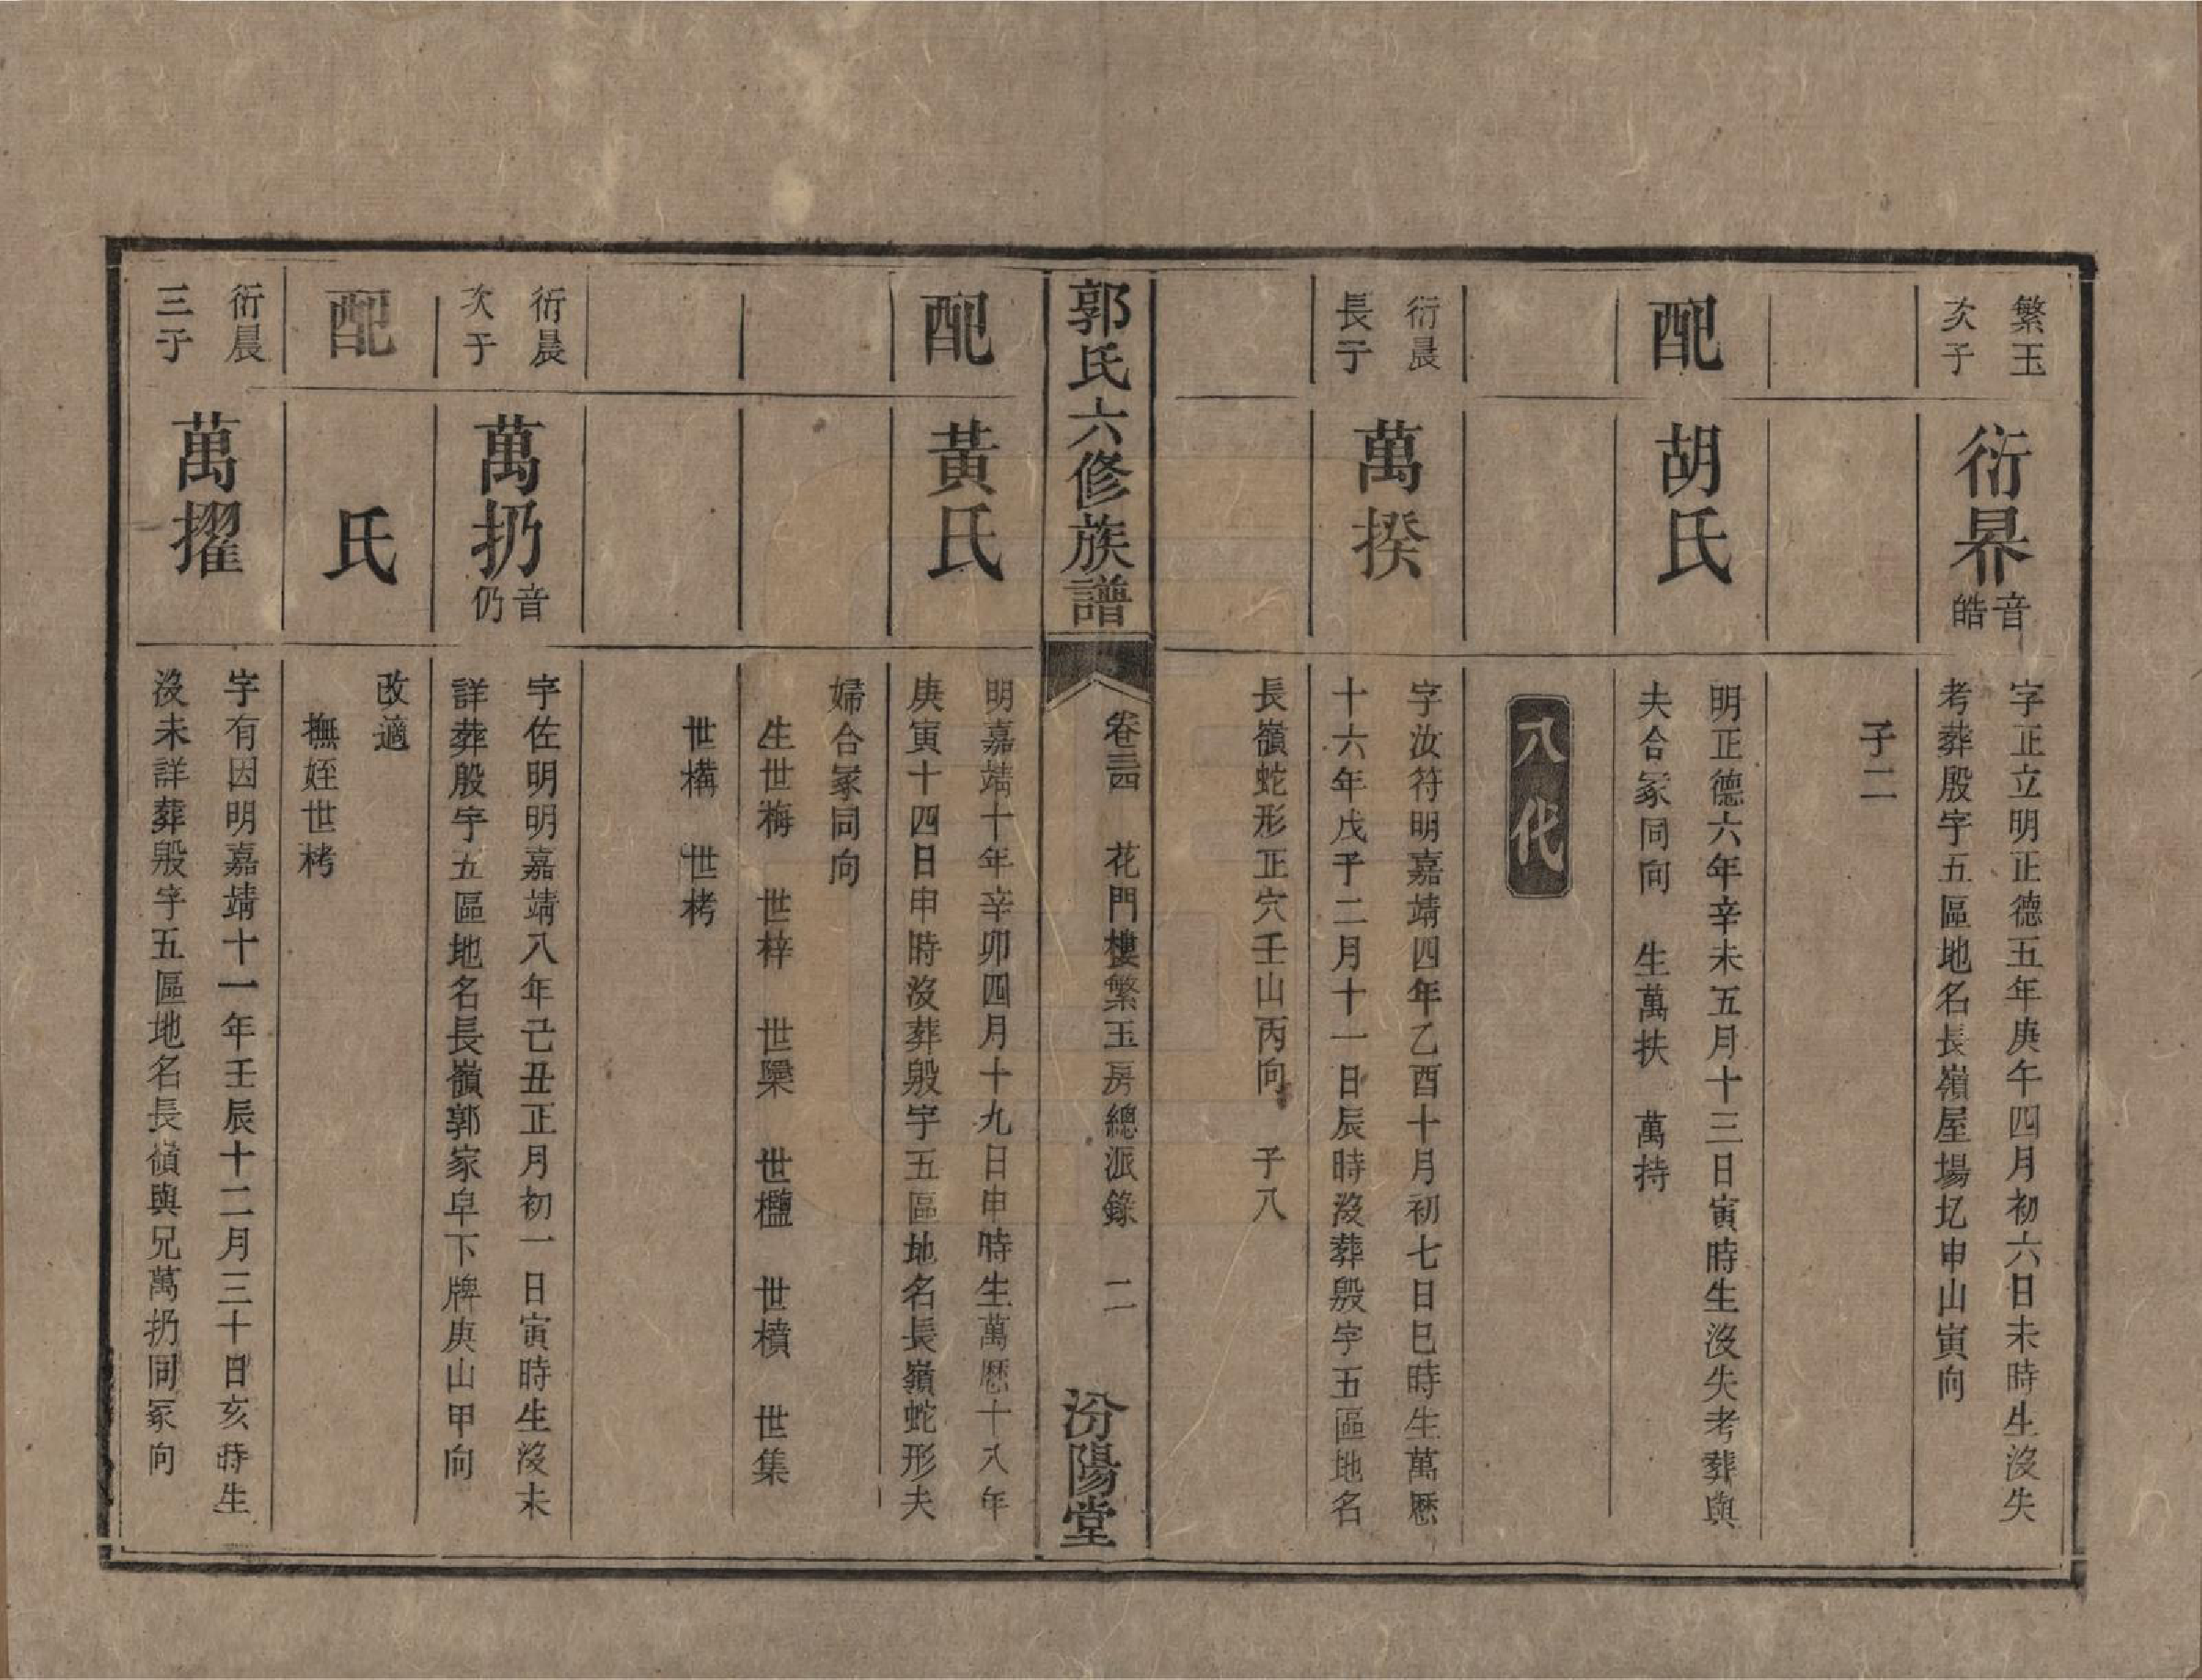 繁玉
次子
衍昦
音
皓
字正立明正德五年庚午四月初六日未時生沒失
考葬殷字五區地名長嶺屋場圪申山寅向
子二
配
胡氏
明正德六年辛未五月十三日寅時生沒失考葬與
夫合冢同向 生萬扶 萬持
八代
衍晨
長子
萬揆
字汝符明嘉靖四年乙酉十月初七日巳時生萬曆
十六年戊子二月十一日辰時沒葬殷字五區地名
長嶺蛇形正穴壬山丙向 子八
郭氏六修族譜
卷三四 花門樓繁玉房總派錄 二
汾陽堂
配
黃氏
明嘉靖十年辛卯四月十九日申時生萬曆十八年
庚寅十四日申時沒葬殷字五區地名長嶺蛇形夫
婦合冢同向
生世梅 世梓 世槼 世㰖 世樻 世集
世構 世栲
衍晨
次子
萬扔
音
仍
字佐明明嘉靖八年己丑正月初一日寅時生沒未
詳葬殷字五區地名長嶺郭家皁下牌庚山甲向
配
氏
改適
撫姪世栲
衍晨
三子
萬擢
字有因明嘉靖十一年壬辰十二月三十日亥時生
沒未詳葬殷字五區地名長嶺與兄萬扔同冢向